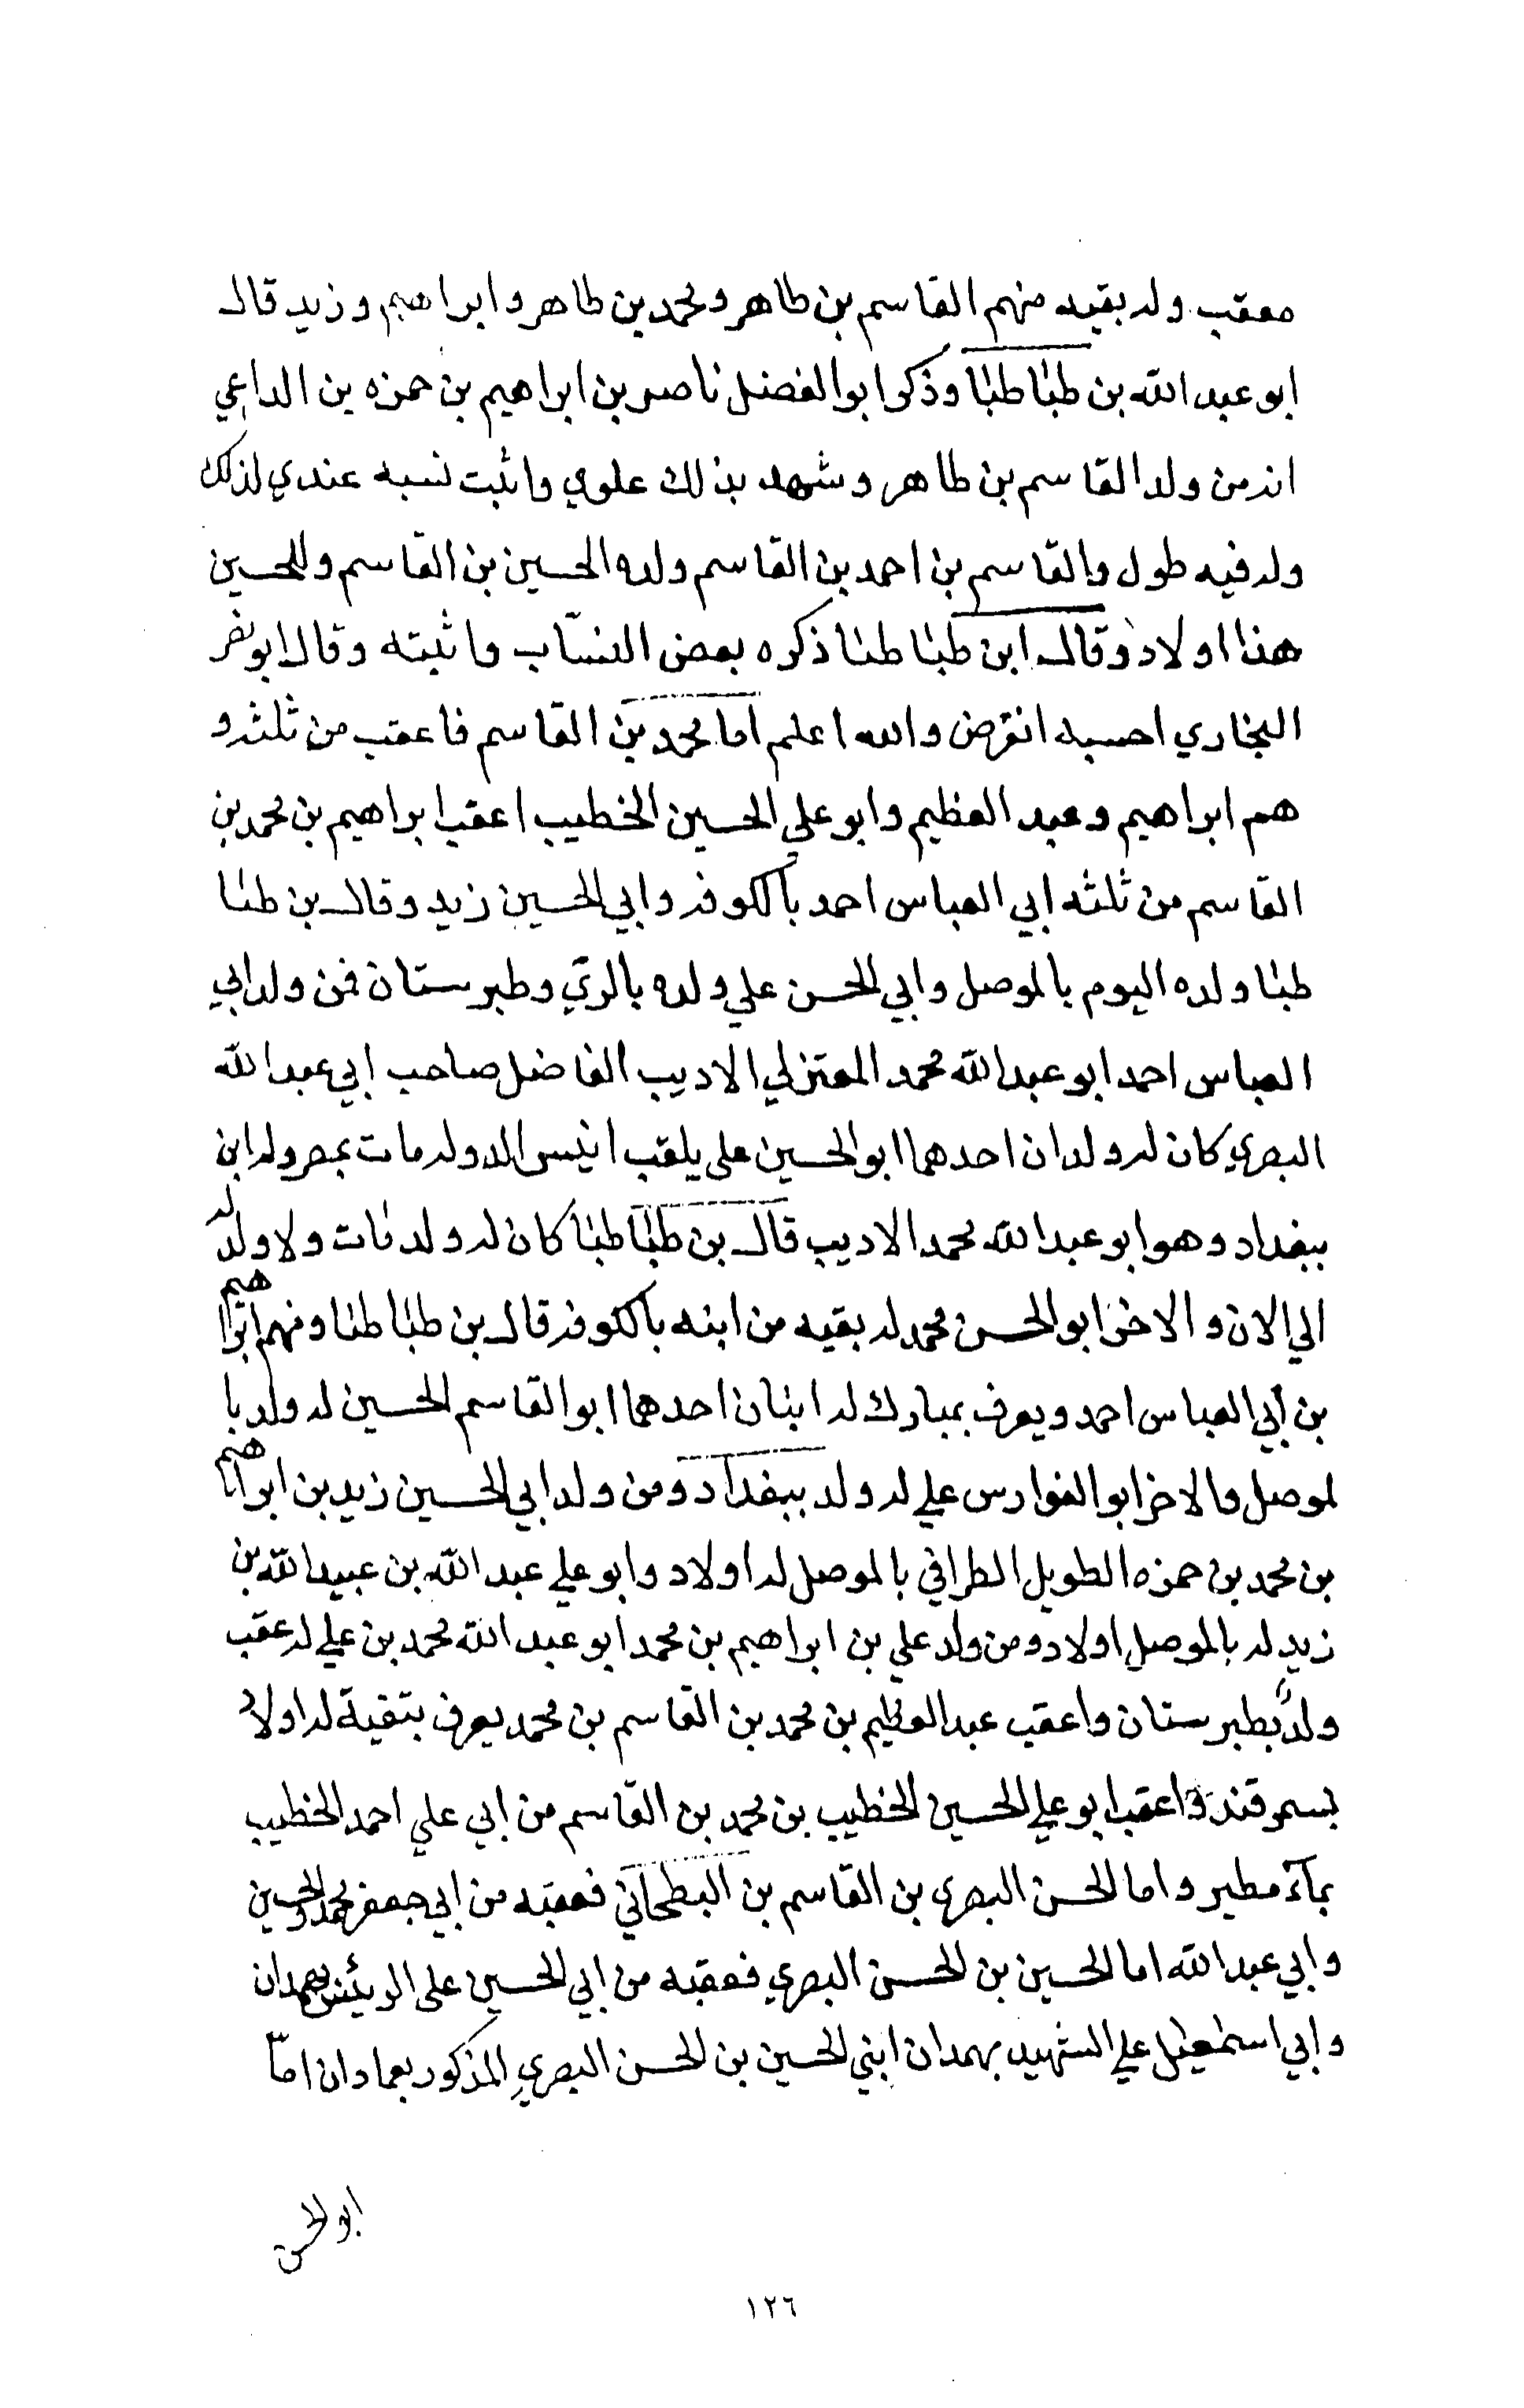 معقب وله بقيه منهم القاسم بن طاهر ومحمد بن طاهر وابراهيم وزيد قال
ابو عبد الله بن طباطبا وذكر ابو الفضل ناصر بن ابراهيم بن حمزه بن الداعي
انه من ولد القاسم بن طاهر وشهد بذلك علوي واثبت نسبه عندي لذلك
وله فيه طول والقاسم بن احمد بن القاسم ولده الحسين بن القاسم وللحسين
هذا اولاد وقال ابن طباطبا ذكره بعض النساب واثبته وقال ابو نصر
البخاري احسبه انقرض والله اعلم اما محمد بن القاسم فاعقب من ثلثه و
هم ابراهيم وعبد العظيم وابو علي الحسين الخطيب اعقب ابراهيم بن محمد بن
القاسم من ثلثه ابي العباس احمد بالكوفه وابي الحسين زيد وقال بن طبا
طبا ولده اليوم بالموصل وابي الحسن علي ولده بالري وطبرستان فمن ولد ابي
العباس احمد ابو عبد الله محمد المعتزلي الاديب الفاضل صاحب ابي عبد الله
البصري كان له ولدان احدهما ابو الحسين على يلقب انيس الدوله مات بمصر وله ابن
ببغداد وهو ابو عبد الله محمد الاديب قال بن طباطبا كان له ولد فمات ولا ولد له
الي الان والاخر ابو الحسن محمد له بقيه من ابنه بالكوفه قال بن طباطبا ومنهم ابراهيم
بن أبي العباس احمد ويعرف بمبارك له ابنان احدهما ابو القاسم الحسين له ولد با
لموصل والاخر ابو الفوارس علي له ولد ببغداد ومن ولد ابي الحسين زيد بن ابراهيم
بن محمد بن حمزه الطويل الطرافي بالموصل له اولاد وابو علي عبد الله بن عبيد الله بن
زيد له بالموصل اولاد ومن ولد علي بن ابراهيم بن محمد ابو عبد الله محمد بن علي له عقب
ولدٌ بطبرستان واعقب عبد العظيم بن محمد بن القاسم بن محمد يعرف بتقية له اولاد
بسمرقند واعقب ابو علي الحسين الخطيب بن محمد بن القاسم من ابي علي احمد الخطيب
بمآء مطير واما الحسن البصري بن القاسم بن البطحاني فعقبه من ابي جعفر محمد والحسين
وابي عبد الله اما الحسين بن الحسن البصري فعقبه من ابي الحسين على الرئيس بهمدان
وابي اسمعيل علي الشهيد بهمدان ابني الحسين بن الحسن البصري المذكور بعمادان امّا
ابو الحسن
١٢٦